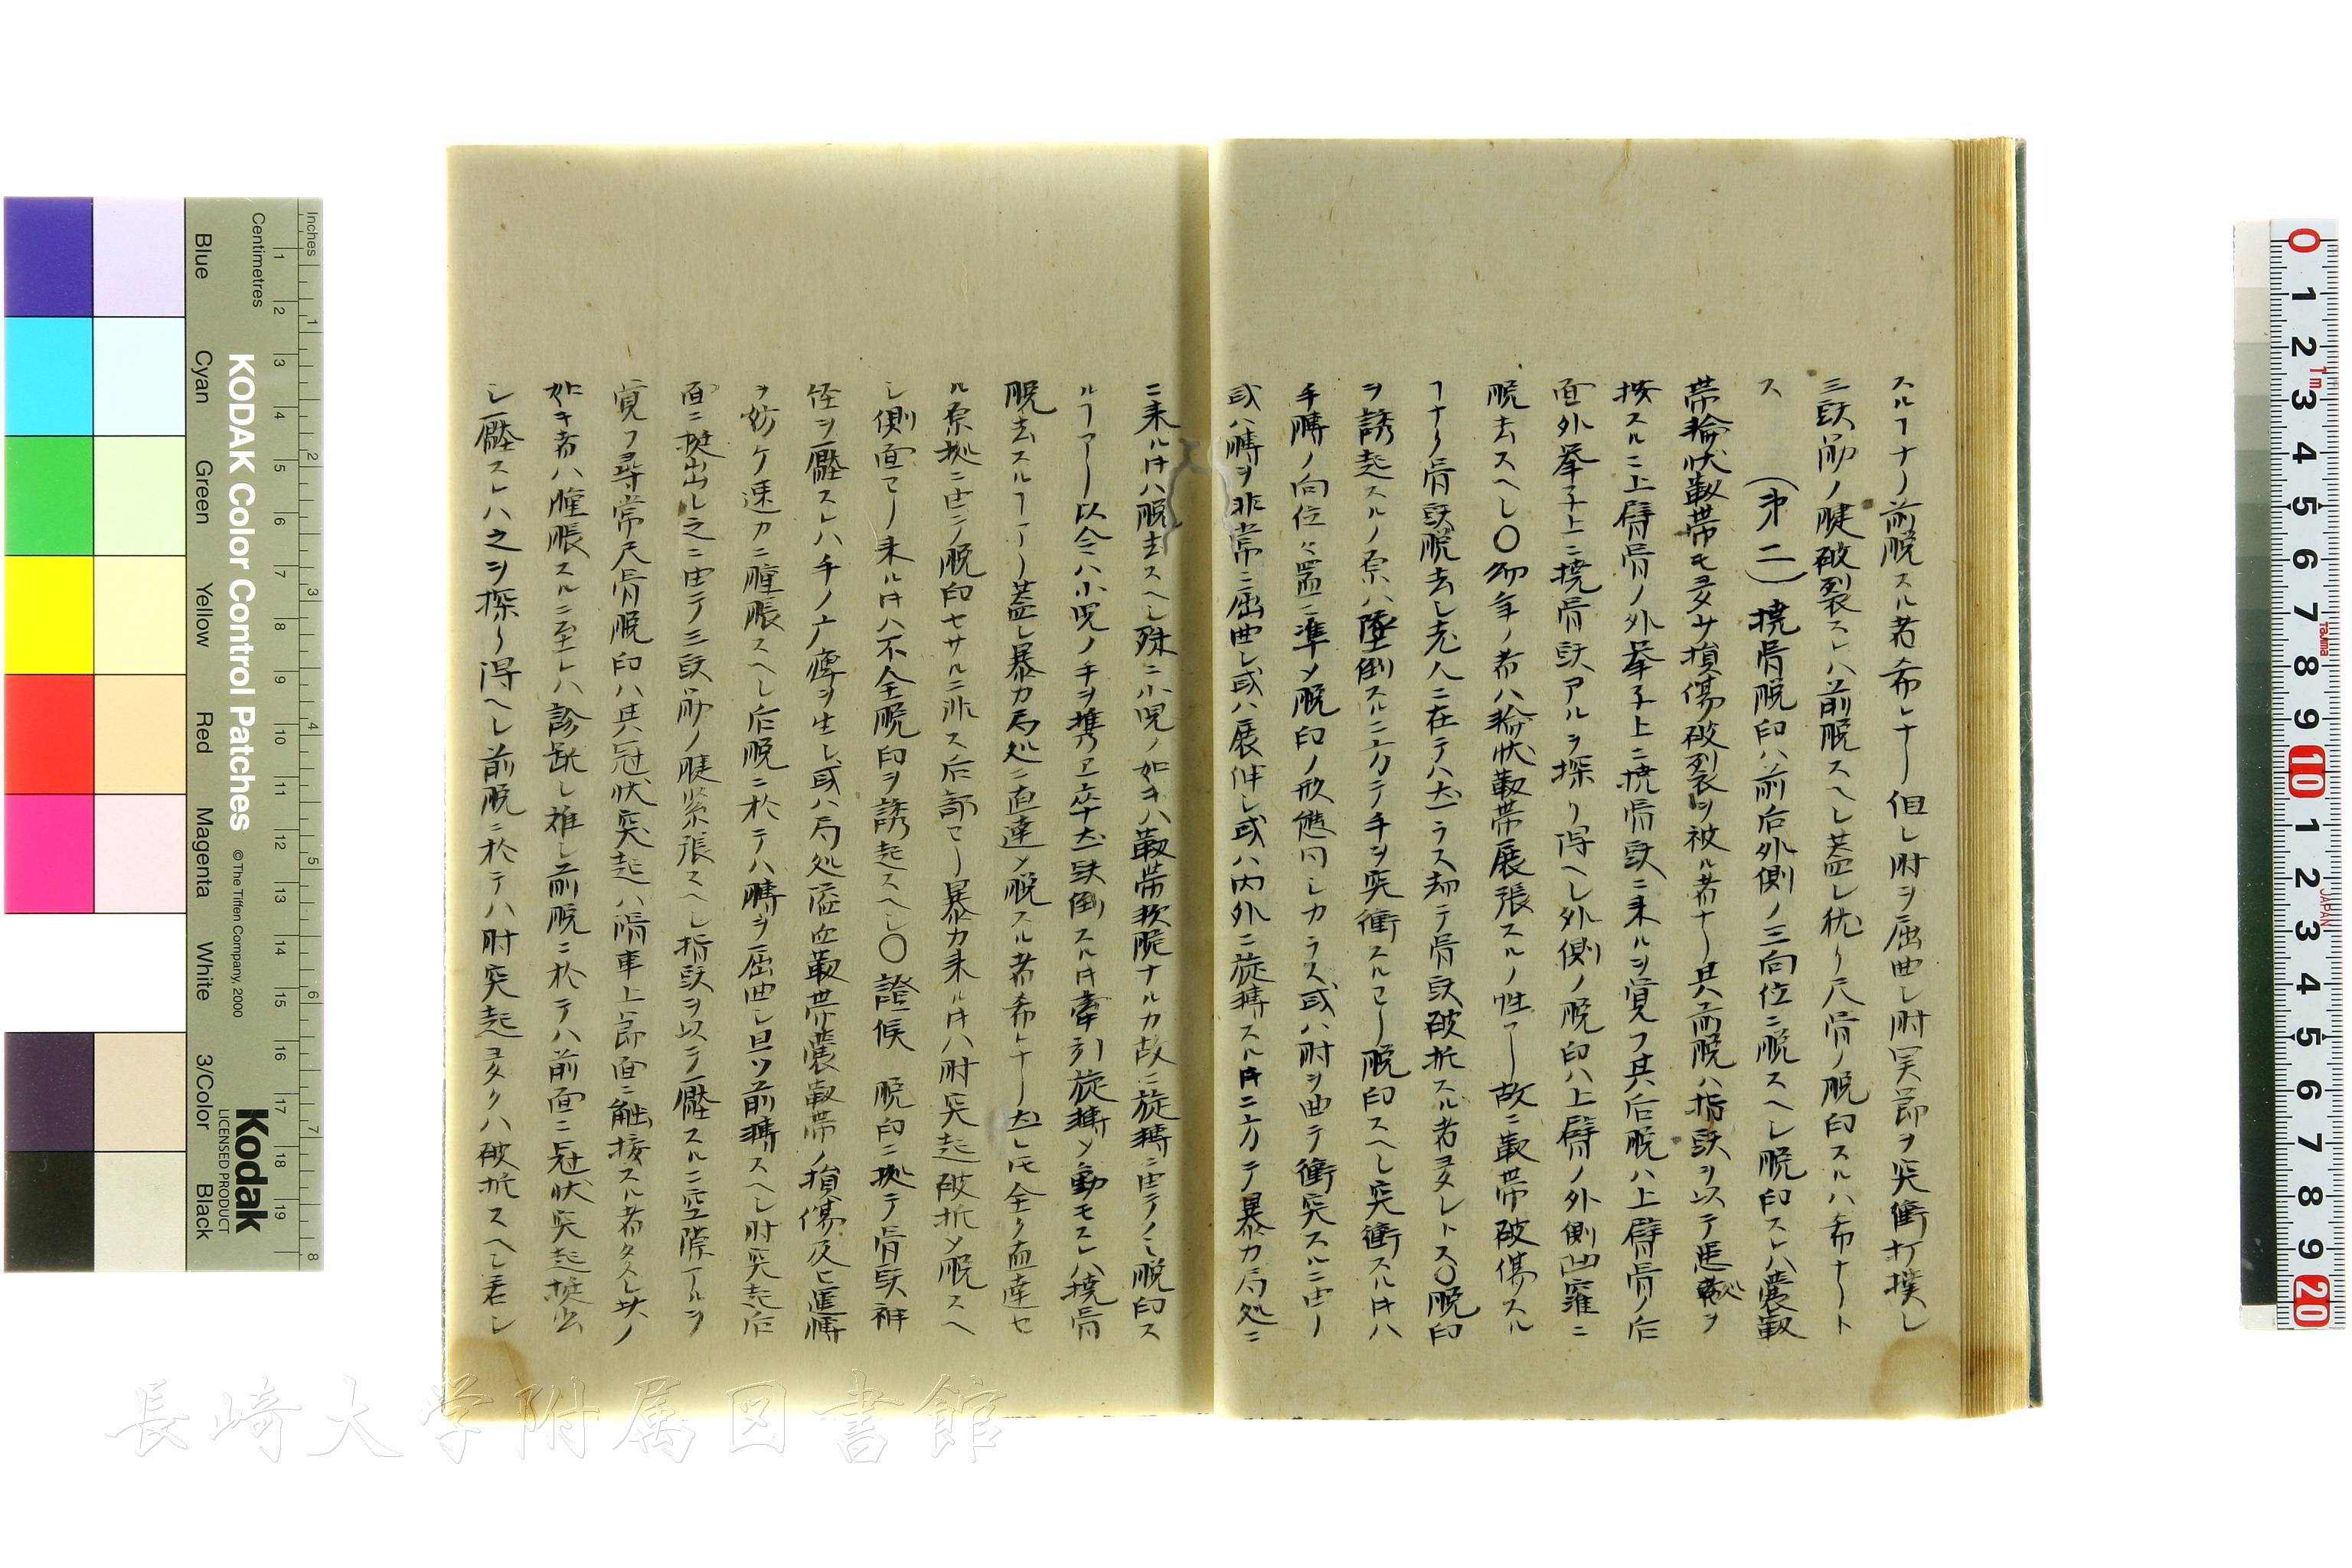 スルヿナシ前脱スル者希レナリ但シ肘ヲ屈曲シ肘尖節ヲ突衝打撲シ
三頭筋ノ腱破裂スレハ前脱スヘシ蓋シ独リ尺骨ノ脱臼スルハ希ナリト
ス
(第二)撓骨脱臼ハ前后外側ノ三向位ニ脱スヘシ脱臼スレハ嚢靱
帯輪状靱帯モ多少損傷破裂ヲ被ル者ナリ其前脱ハ指頭ヲ以テ
按スルニ上臂骨ノ外挙子上ニ撓骨頭ニ来ルヲ覚フ其后脱ハ上臂骨ノ后
面外挙子上ニ撓骨頭アルヲ探リ得ヘシ外側ノ脱臼ハ上臂ノ外側凹窪ニ
脱去スヘシ〇幼年ノ者ハ輪状靱帯展張スルノ性アリ故ニ靱帯破傷スル
ヿナク骨頭脱去シ老人ニ在テハ然ラス却テ骨頭破折スル者多シトス〇脱臼
ヲ誘起スルノ原ハ墜倒スルニ方テ手ヲ突衝スルヿアリ脱臼スヘシ突衝スル片ハ
手膊ノ向位位置ニ準メ脱臼ノ形態同シカラス或ハ肘ヲ曲テ衝突スルニ由リ
或ハ膊ヲ非常ニ屈曲シ或ハ展伸シ或ハ内外ニ旋転スル片ニ方テ暴力局処ニ
ニ来ル片ハ脱去スヘシ殊ニ小児ノ如キハ靱帯軟脆ナルカ故ニ旋転ニ由テノミ脱臼ス
ルヿアリ以令ハ小児ノ手ヲ携ヱ卒然頭倒スル片牽引旋転メ動モスレハ撓骨
脱去スルヿアリ蓋シ暴力局処ニ直達メ脱スル者希レナリ然レ𪜈全ク直達セ
ル原拠ニ由テ脱臼セサルニ非ス后部ヨリ暴力来ル片ハ肘尖起破折メ脱スヘ
シ側面ヨリ来ル片ハ不全脱臼ヲ誘起スヘシ〇證候 脱臼ニ拠テ骨頭神
経ヲ壓スレハ手ノ广痺ヲ生シ或ハ局処溢血靱帯嚢靱帯ノ損傷及ヒ運動
ヲ妨ケ速カニ腫脹スヘシ后脱ニ於テハ膊ヲ屈曲シ且ツ前転スヘシ肘突起后
面ニ挺出シ之ニ由テ三頭筋ノ腱緊張スヘシ指頭ヲ以テ壓スルニ空隙アルヲ
覚フ尋常尺骨脱臼ハ其冠状突起ハ滑車上節面ニ触接スル者タヘシ此ノ
如キ者ハ腫脹スルニ至レハ診断シ難シ前脱ニ於テハ前面ニ冠状突起挺出
シ壓スレハ之ヲ探リ得ヘシ前脱ニ於テハ肘突起多クハ破折スヘシ若シ
長崎大学附属図書館
KODAK Color Control Patches
© The Tiffen Company, 2000
Kodak
LICENSED PRODUCT
Inches
Centimetres
Blue
Cyan
Green
Yellow
Red
Magenta
White
3/Color
Black